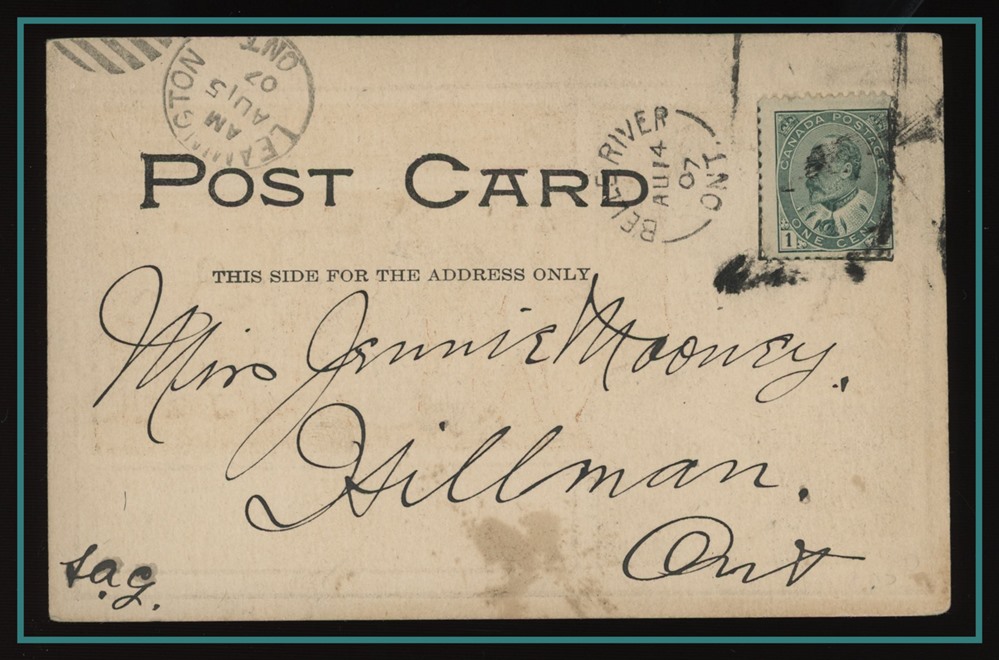 LEAMINGTON
AM
AU 15
07
ONT
BELLE RIVER
AU 14
07
ONT.
CANADA POSTAGE
1 ONE CENT
POST CARD
THIS SIDE FOR THE ADDRESS ONLY
Miss Jennie Mooney.
Hillman.
Ont
s.a.g.